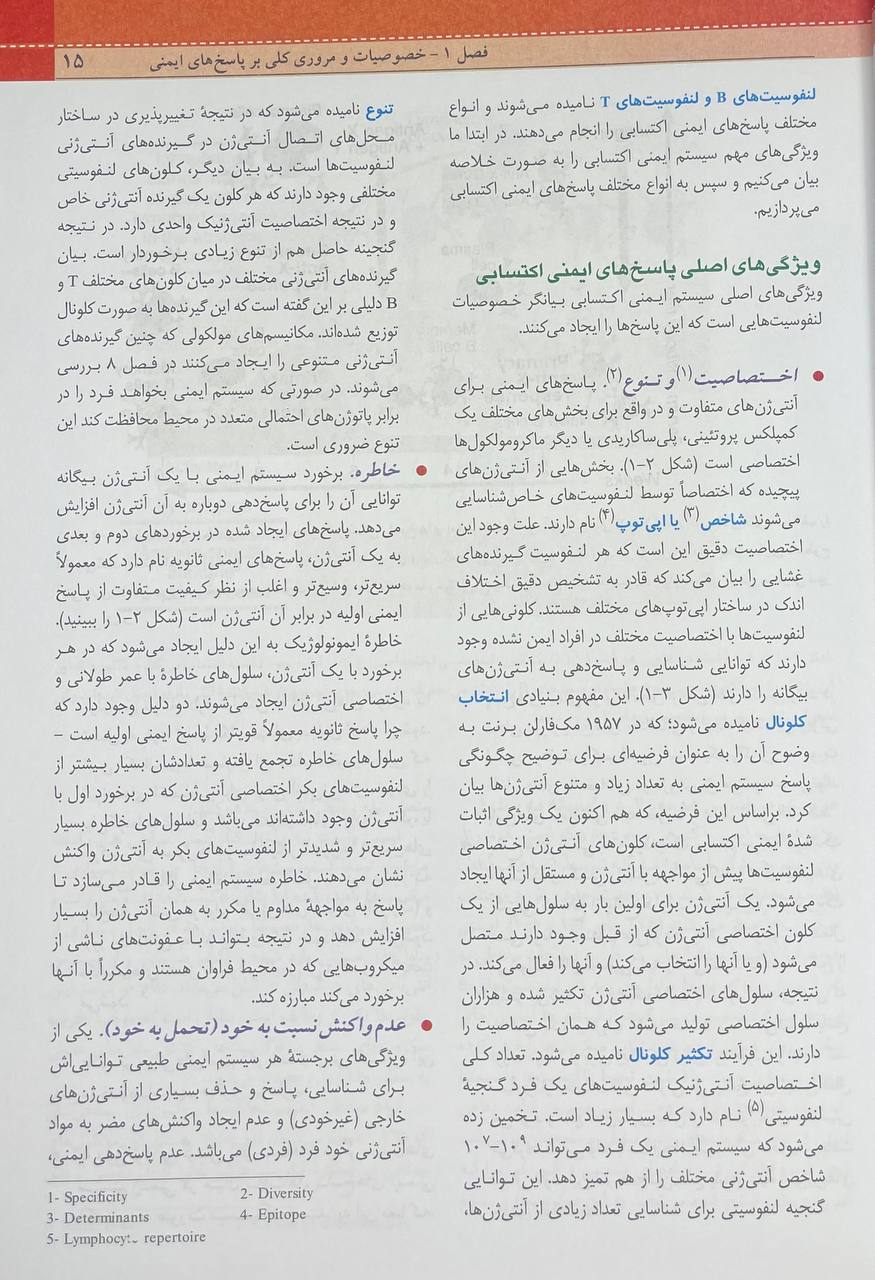 فصل ۱ - خصوصیات و مروری کلی بر پاسخ‌های ایمنی
۱۵
لنفوسیت‌های B و لنفوسیت‌های T نامیده می‌شوند و انواع
مختلف پاسخ‌های ایمنی اکتسابی را انجام می‌دهند. در ابتدا ما
ویژگی‌های مهم سیستم ایمنی اکتسابی را به صورت خلاصه
بیان می‌کنیم و سپس به انواع مختلف پاسخ‌های ایمنی اکتسابی
می‌پردازیم.
ویژگی‌های اصلی پاسخ‌های ایمنی اکتسابی
ویژگی‌های اصلی سیستم ایمنی اکتسابی بیانگر خصوصیات
لنفوسیت‌هایی است که این پاسخ‌ها را ایجاد می‌کنند.
● اختصاصیت(۱) و تنوع(۲). پاسخ‌های ایمنی برای
آنتی‌ژن‌های متفاوت و در واقع برای بخش‌های مختلف یک
کمپلکس پروتئینی، پلی‌ساکاریدی یا دیگر ماکرومولکول‌ها
اختصاصی است (شکل ۲-۱). بخش‌هایی از آنتی‌ژن‌های
پیچیده که اختصاصاً توسط لنفوسیت‌های خاص‌شناسایی
می‌شوند شاخص(۳) یا اپی‌توپ(۴) نام دارند. علت وجود این
اختصاصیت دقیق این است که هر لنفوسیت گیرنده‌های
غشایی را بیان می‌کند که قادر به تشخیص دقیق اختلاف
اندک در ساختار اپی‌توپ‌های مختلف هستند. کلونی‌هایی از
لنفوسیت‌ها با اختصاصیت مختلف در افراد ایمن نشده وجود
دارند که توانایی شناسایی و پاسخ‌دهی به آنتی‌ژن‌های
بیگانه را دارند (شکل ۳-۱). این مفهوم بنیادی انتخاب
کلونال نامیده می‌شود؛ که در ۱۹۵۷ مک‌فارلن برنت به
وضوح آن را به عنوان فرضیه‌ای برای توضیح چگونگی
پاسخ سیستم ایمنی به تعداد زیاد و متنوع آنتی‌ژن‌ها بیان
کرد. براساس این فرضیه، که هم اکنون یک ویژگی اثبات
شدهٔ ایمنی اکتسابی است، کلون‌های آنتی‌ژن اختصاصی
لنفوسیت‌ها پیش از مواجهه با آنتی‌ژن و مستقل از آنها ایجاد
می‌شود. یک آنتی‌ژن برای اولین بار به سلول‌هایی از یک
کلون اختصاصی آنتی‌ژن که از قبل وجود دارند متصل
می‌شود (و یا آنها را انتخاب می‌کند) و آنها را فعال می‌کند. در
نتیجه، سلول‌های اختصاصی آنتی‌ژن تکثیر شده و هزاران
سلول اختصاصی تولید می‌شود که همان اختصاصیت را
دارند. این فرآیند تکثیر کلونال نامیده می‌شود. تعداد کلی
اختصاصیت آنتی‌ژنیک لنفوسیت‌های یک فرد گنجیهٔ
لنفوسیتی(۵) نام دارد که بسیار زیاد است. تخمین زده
می‌شود که سیستم ایمنی یک فرد می‌تواند ۱۰⁷-۱۰⁹
شاخص آنتی‌ژنی مختلف را از هم تمیز دهد. این توانایی
گنجیه لنفوسیتی برای شناسایی تعداد زیادی از آنتی‌ژن‌ها،
تنوع نامیده می‌شود که در نتیجهٔ تغییرپذیری در ساختار
محل‌های اتصال آنتی‌ژن در گیرنده‌های آنتی‌ژنی
لنفوسیت‌ها است. به بیان دیگر، کلون‌های لنفوسیتی
مختلفی وجود دارند که هر کلون یک گیرنده آنتی‌ژنی خاص
و در نتیجه اختصاصیت آنتی‌ژنیک واحدی دارد. در نتیجه
گنجینه حاصل هم از تنوع زیادی برخوردار است. بیان
گیرنده‌های آنتی‌ژنی مختلف در میان کلون‌های مختلف T و
B دلیلی بر این گفته است که این گیرنده‌ها به صورت کلونال
توزیع شده‌اند. مکانیسم‌های مولکولی که چنین گیرنده‌های
آنتی‌ژنی متنوعی را ایجاد می‌کنند در فصل ۸ بررسی
می‌شوند. در صورتی که سیستم ایمنی بخواهد فرد را در
برابر پاتوژن‌های احتمالی متعدد در محیط محافظت کند این
تنوع ضروری است.
● خاطره. برخورد سیستم ایمنی با یک آنتی‌ژن بیگانه
توانایی آن را برای پاسخ‌دهی دوباره به آن آنتی‌ژن افزایش
می‌دهد. پاسخ‌های ایجاد شده در برخوردهای دوم و بعدی
به یک آنتی‌ژن، پاسخ‌های ایمنی ثانویه نام دارد که معمولاً
سریع‌تر، وسیع‌تر و اغلب از نظر کیفیت متفاوت از پاسخ
ایمنی اولیه در برابر آن آنتی‌ژن است (شکل ۲-۱ را ببینید).
خاطرهٔ ایمونولوژیک به این دلیل ایجاد می‌شود که در هر
برخورد با یک آنتی‌ژن، سلول‌های خاطرهٔ با عمر طولانی و
اختصاصی آنتی‌ژن ایجاد می‌شوند. دو دلیل وجود دارد که
چرا پاسخ ثانویه معمولاً قویتر از پاسخ ایمنی اولیه است –
سلول‌های خاطره تجمع یافته و تعدادشان بسیار بیشتر از
لنفوسیت‌های بکر اختصاصی آنتی‌ژن که در برخورد اول با
آنتی‌ژن وجود داشته‌اند می‌باشد و سلول‌های خاطره بسیار
سریع‌تر و شدیدتر از لنفوسیت‌های بکر به آنتی‌ژن واکنش
نشان می‌دهند. خاطره سیستم ایمنی را قادر می‌سازد تا
پاسخ به مواجههٔ مداوم یا مکرر به همان آنتی‌ژن را بسیار
افزایش دهد و در نتیجه بتواند با عفونت‌های ناشی از
میکروب‌هایی که در محیط فراوان هستند و مکرراً با آنها
برخورد می‌کند مبارزه کند.
● عدم واکنش نسبت به خود (تحمل به خود). یکی از
ویژگی‌های برجستهٔ هر سیستم ایمنی طبیعی توانایی‌اش
برای شناسایی، پاسخ و حذف بسیاری از آنتی‌ژن‌های
خارجی (غیرخودی) و عدم ایجاد واکنش‌های مضر به مواد
آنتی‌ژنی خود فرد (فردی) می‌باشد. عدم پاسخ‌دهی ایمنی،
1- Specificity
2- Diversity
3- Determinants
4- Epitope
5- Lymphocyte repertoire